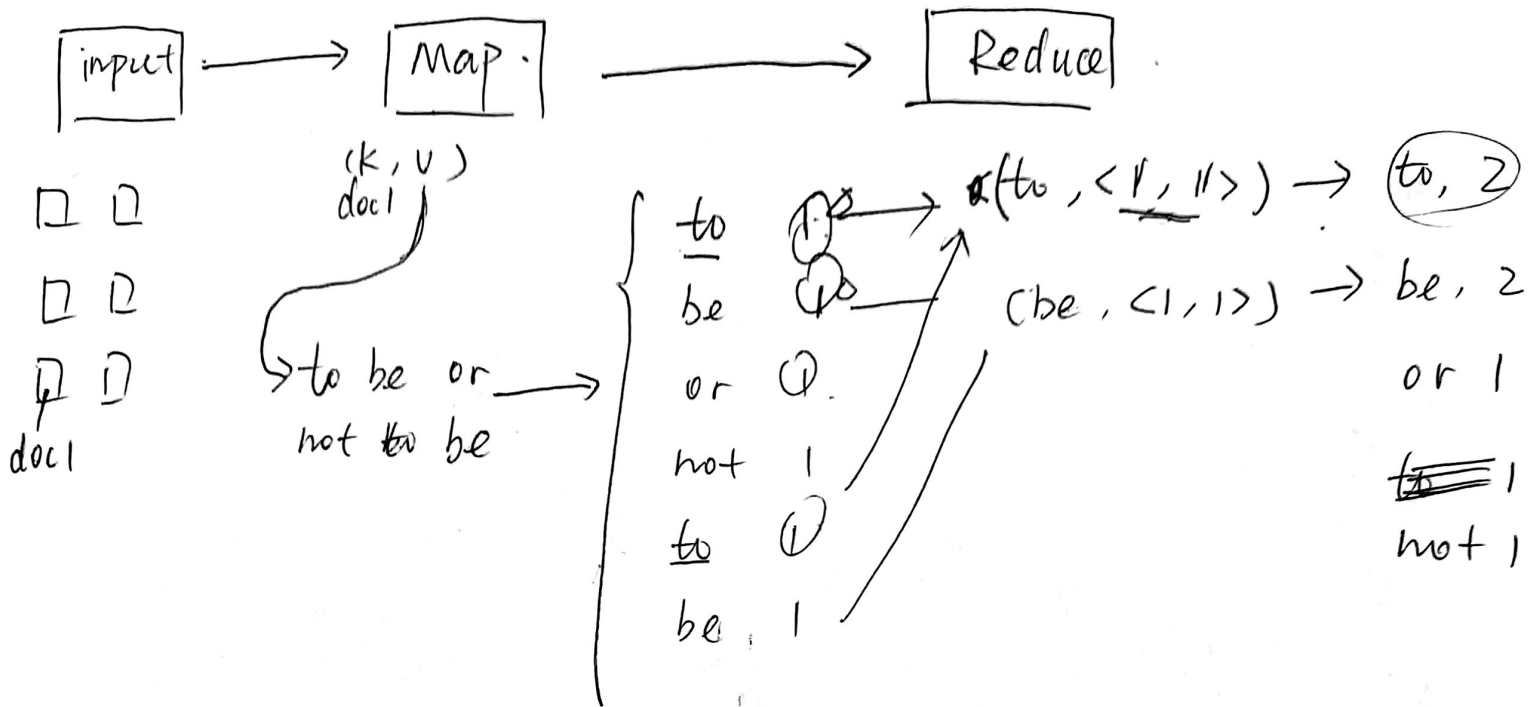 input → Map. → Reduce
(k, v)
doc1
doc1
to be or
not to be
to 1
be 1
or 1.
not 1
to 1
be, 1
(to, <1, 1>) → to, 2
(be, <1, 1>) → be, 2
or 1
to 1
not 1